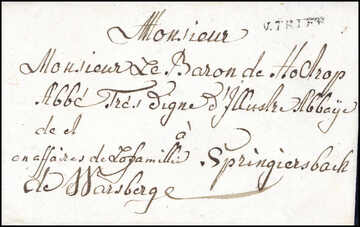 Monsieur
V. TRIER
Monsieur Le Baron de Hoctrop
Abbé Très digne d'Illustre Abbaÿe
de et à
en affaires de La famille Springiersbach
de Warsberge